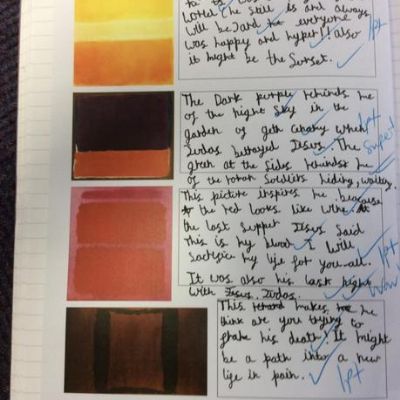 loved. he still is and always
will be. and everyone
was happy and hyper! also
it might be the sunset.
1pt
The Dark purple reminds me
of the night sky in the
garden of geth when
Judas betrayed Jesus. The
green at the sides reminds me
of the roman soldiers hiding, waiting.
1pt
Super!
This picture inspires me because
the red looks like wine. At
the last supper Jesus said
this is my blood I will
sacrifice my life for you all.
It was also his last night
with Jesus. Judas.
1pt
Wow!
This makes me
think are you trying to
his death! It might
be a path into a new
life in pain.
1pt